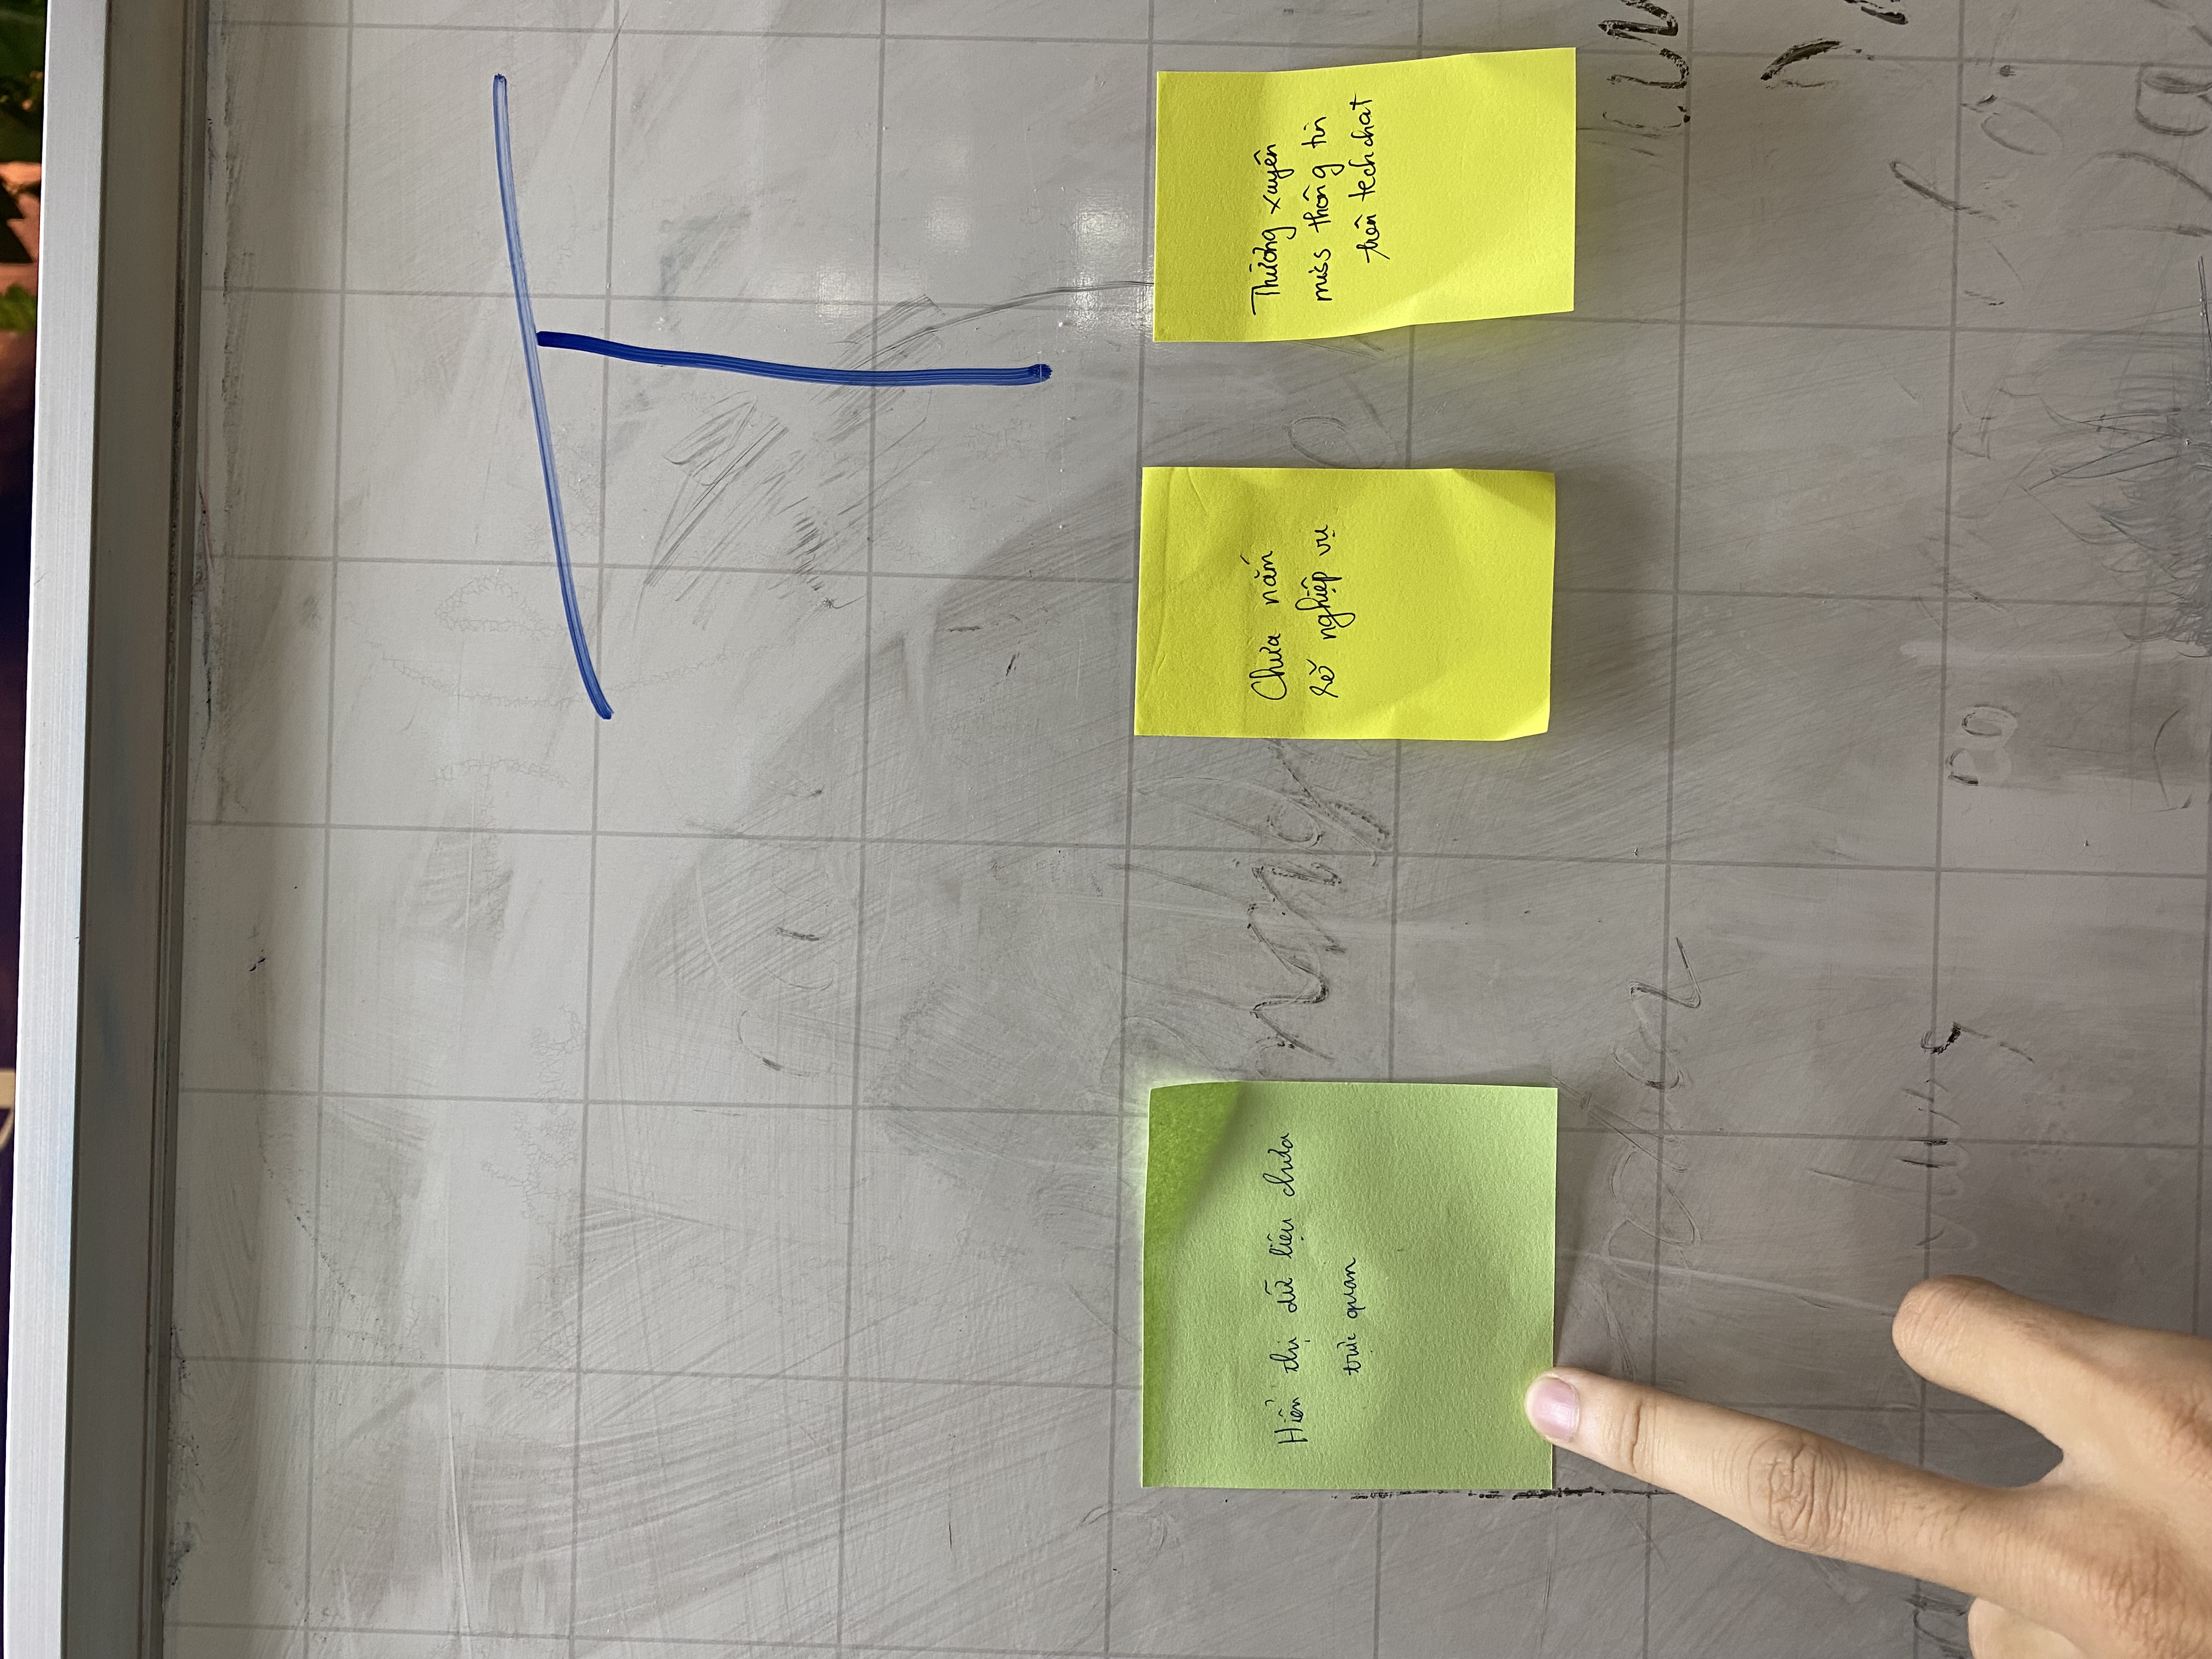 T
Hiển thị dữ liệu chưa
trực quan
Chưa nắm
rõ nghiệp vụ
Thường xuyên
miss thông tin
trên techchat